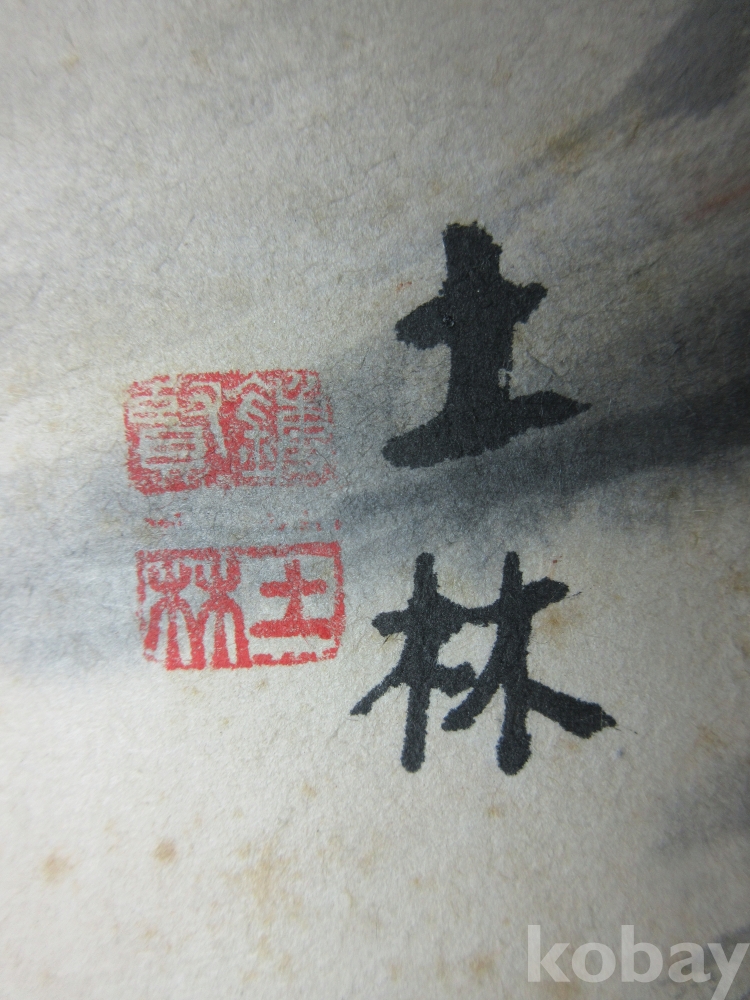 土林
鍾賢
土林
kobay